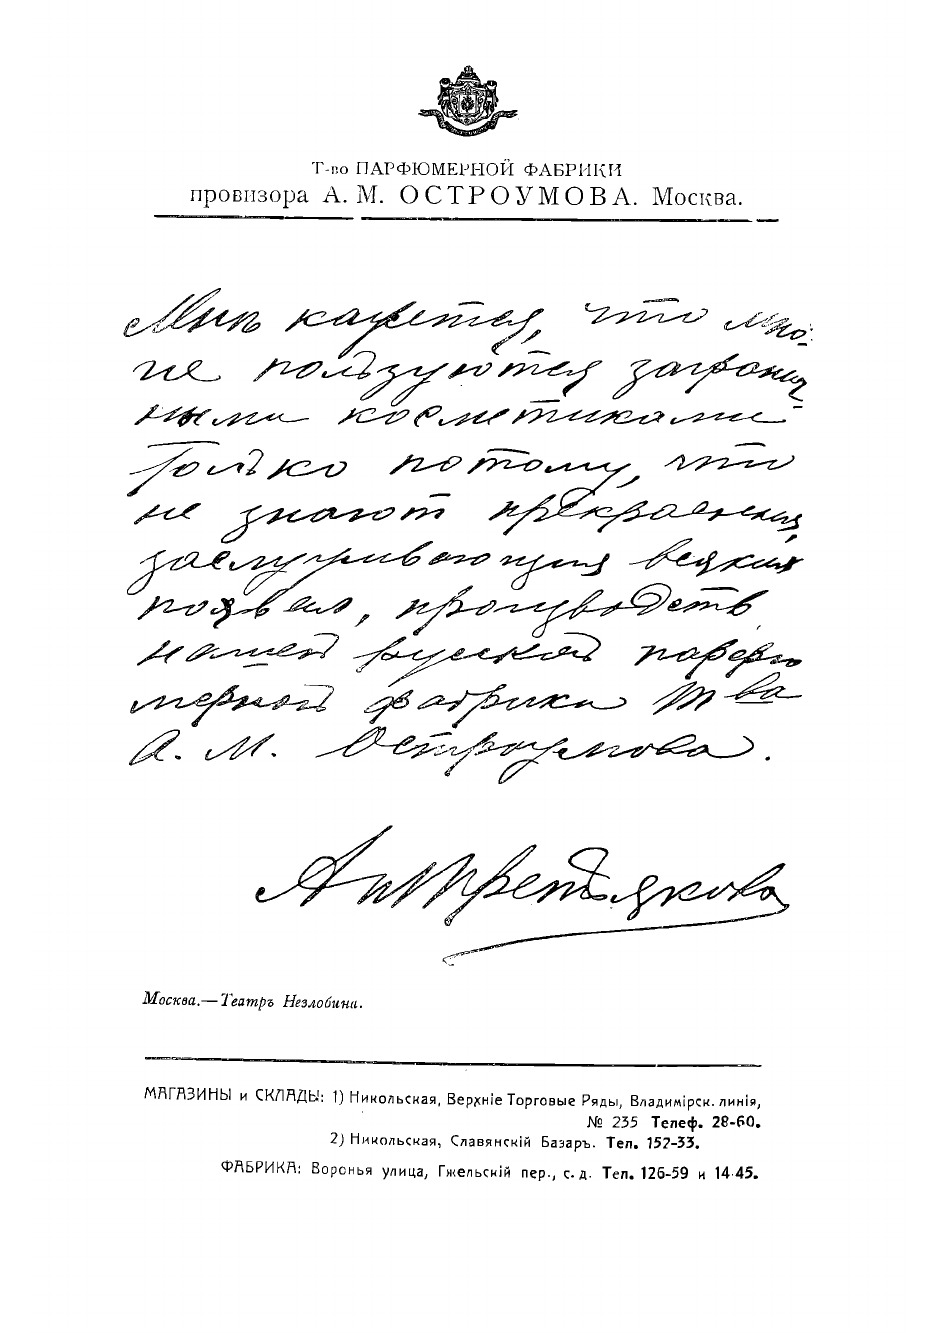 Т-во ПАРФЮМЕРНОЙ ФАБРИКИ
провизора А. М. ОСТРОУМОВА. Москва.
Мнѣ кажется, что мно-
гіе пользуются загранич
ными косметиками
только потому, что
не знают прекрасныя,
заслуживающія всяких
похвал, производств
нашей русской парфю
мерной фабрики Т ва
А. М. Остроумова.
Ан Третьякова
Москва.—Театръ Незлобина.
МАГАЗИНЫ и СКЛАДЫ: 1) Никольская, Верхніе Торговые Ряды, Владимірск. линія,
№ 235 Телеф. 28-60.
2) Никольская, Славянскій Базаръ. Тел. 152-33.
ФАБРИКА: Воронья улица, Гжельскій пер., с. д. Тел. 126-59 и 14-45.